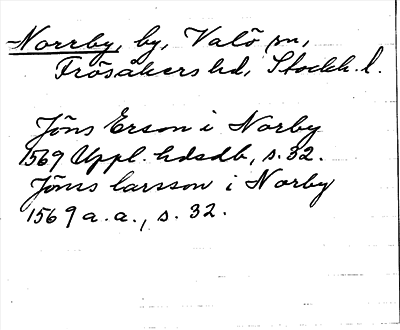 Norrby, by, Valö sn,
Frösåkers hd, Stockh. l.
Jöns Erson i Norby
1569 Uppl. hdsdb, s. 32.
Jöns larsson i Norby
1569 a. a., s. 32.